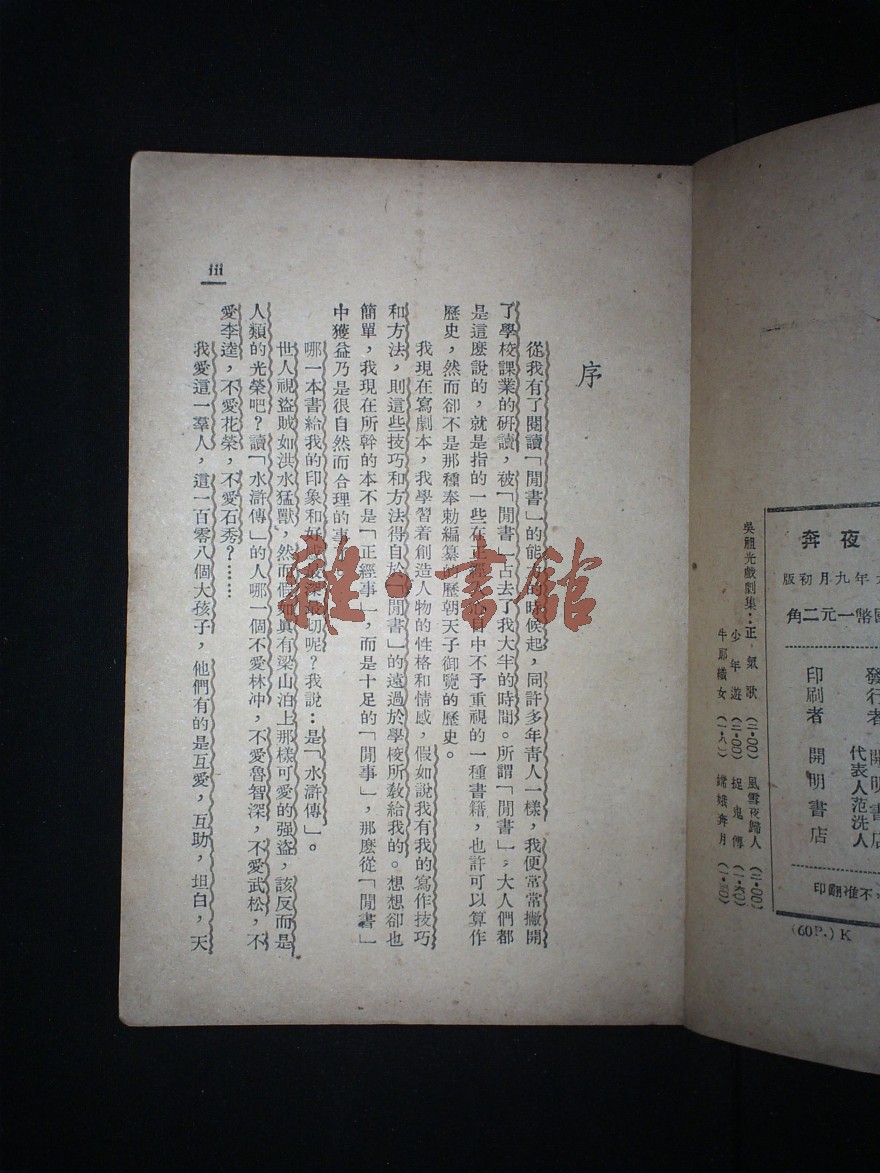 夜奔
年九月初版
國幣一元二角
發行者 開明書店
代表人范洗人
印刷者 開明書店
不准翻印
吳祖光戲劇集：正氣歌（二·〇〇） 風雪夜歸人（二·〇〇）
少年遊（二·〇〇） 捉鬼傳
牛郎織女（一·八） 嫦娥奔月
(60P.) K
序
從我有了閱讀「閒書」的能力的時候起，同許多年青人一樣，我便常常撇開
了學校課業的研讀，被「閒書」占去了我大半的時間。所謂「閒書」，大人們都
是這麽說的，就是指的一些在正經 心目中不予重視的一種書籍，也許可以算作
歷史，然而卻不是那種奉勅編纂的歷朝天子御覽的歷史。
我現在寫劇本，我學習着創造人物的性格和情感，假如說我有我的寫作技巧
和方法，則這些技巧和方法得自於「閒書」的遠過於學校所教給我的。想想卻也
簡單，我現在所幹的本不是「正經事」，而是十足的「閒事」，那麽從「閒書」
中獲益乃是很自然而合理的事
哪一本書給我的印象和 深 切呢？我說：是「水滸傳」。
世人視盜賊如洪水猛獸，然而假如真有梁山泊上那樣可愛的强盜，該反而是
人類的光榮吧？讀「水滸傳」的人哪一個不愛林冲，不愛魯智深，不愛武松，不
愛李逵，不愛花榮，不愛石秀？……
我愛這一羣人，這一百零八個大孩子，他們有的是互愛，互助，坦白，天
iii
雜·書館